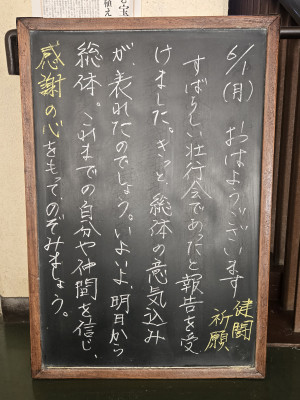 6/1(月) おはようございます
健闘
祈願
すばらしい壮行会であったと報告を受
けました。きっと、総体の意気込み
が、表れたのでしょう。いよいよ、明日から
総体。これまでの自分や仲間を信じ、
感謝の心をもってのぞみましょう。